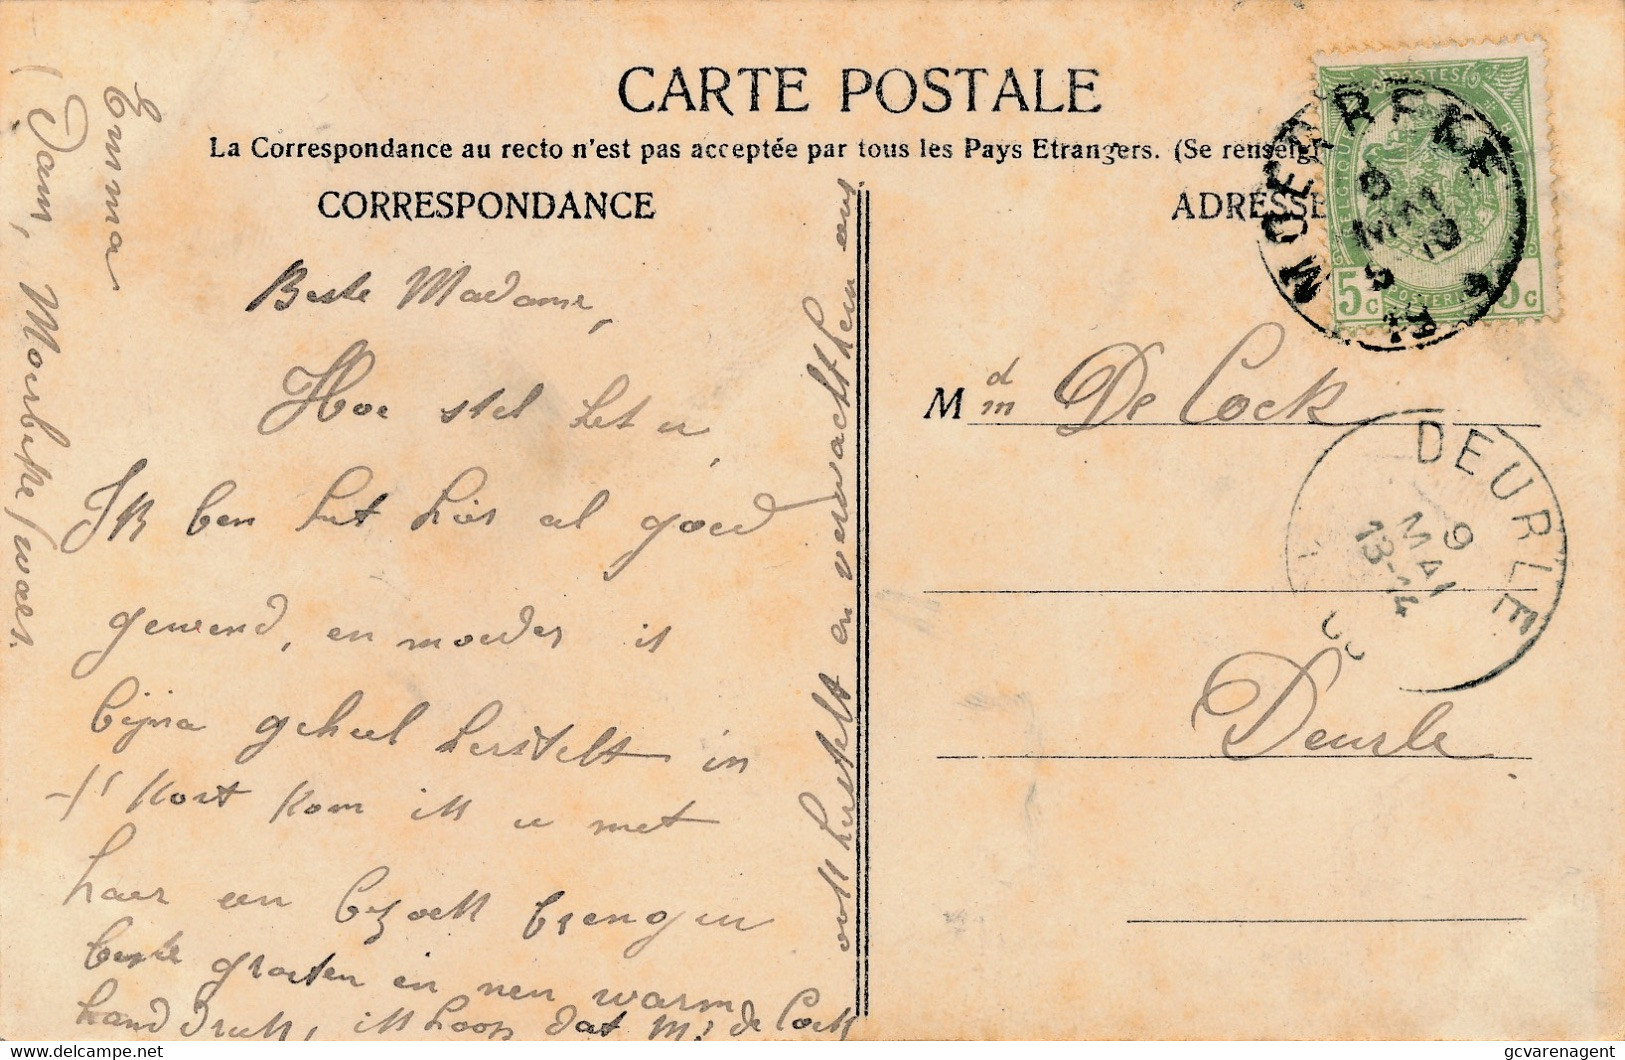 CARTE POSTALE
La Correspondance au recto n'est pas acceptée par tous les Pays Etrangers. (Se renseig
CORRESPONDANCE
ADRESSE
MOERBEKE
9
MAI
5 C
5 C
Beste Madame,
Hoe stel het u,
Ik ben het hier al goed
gewend, en moeder is
bijna geheel herstelt in
't kort kom ik u met
haer een bezoek brengen
beste groeten en nen warm
hand druk, ik hoop dat Mr de Cock
ook herstelt en verwacht hem ons
Emma
Dam, Moerbeke/waes.
Md
De Cock
Deurle
DEURLE
9
MAI
13-14
gcvarenagent